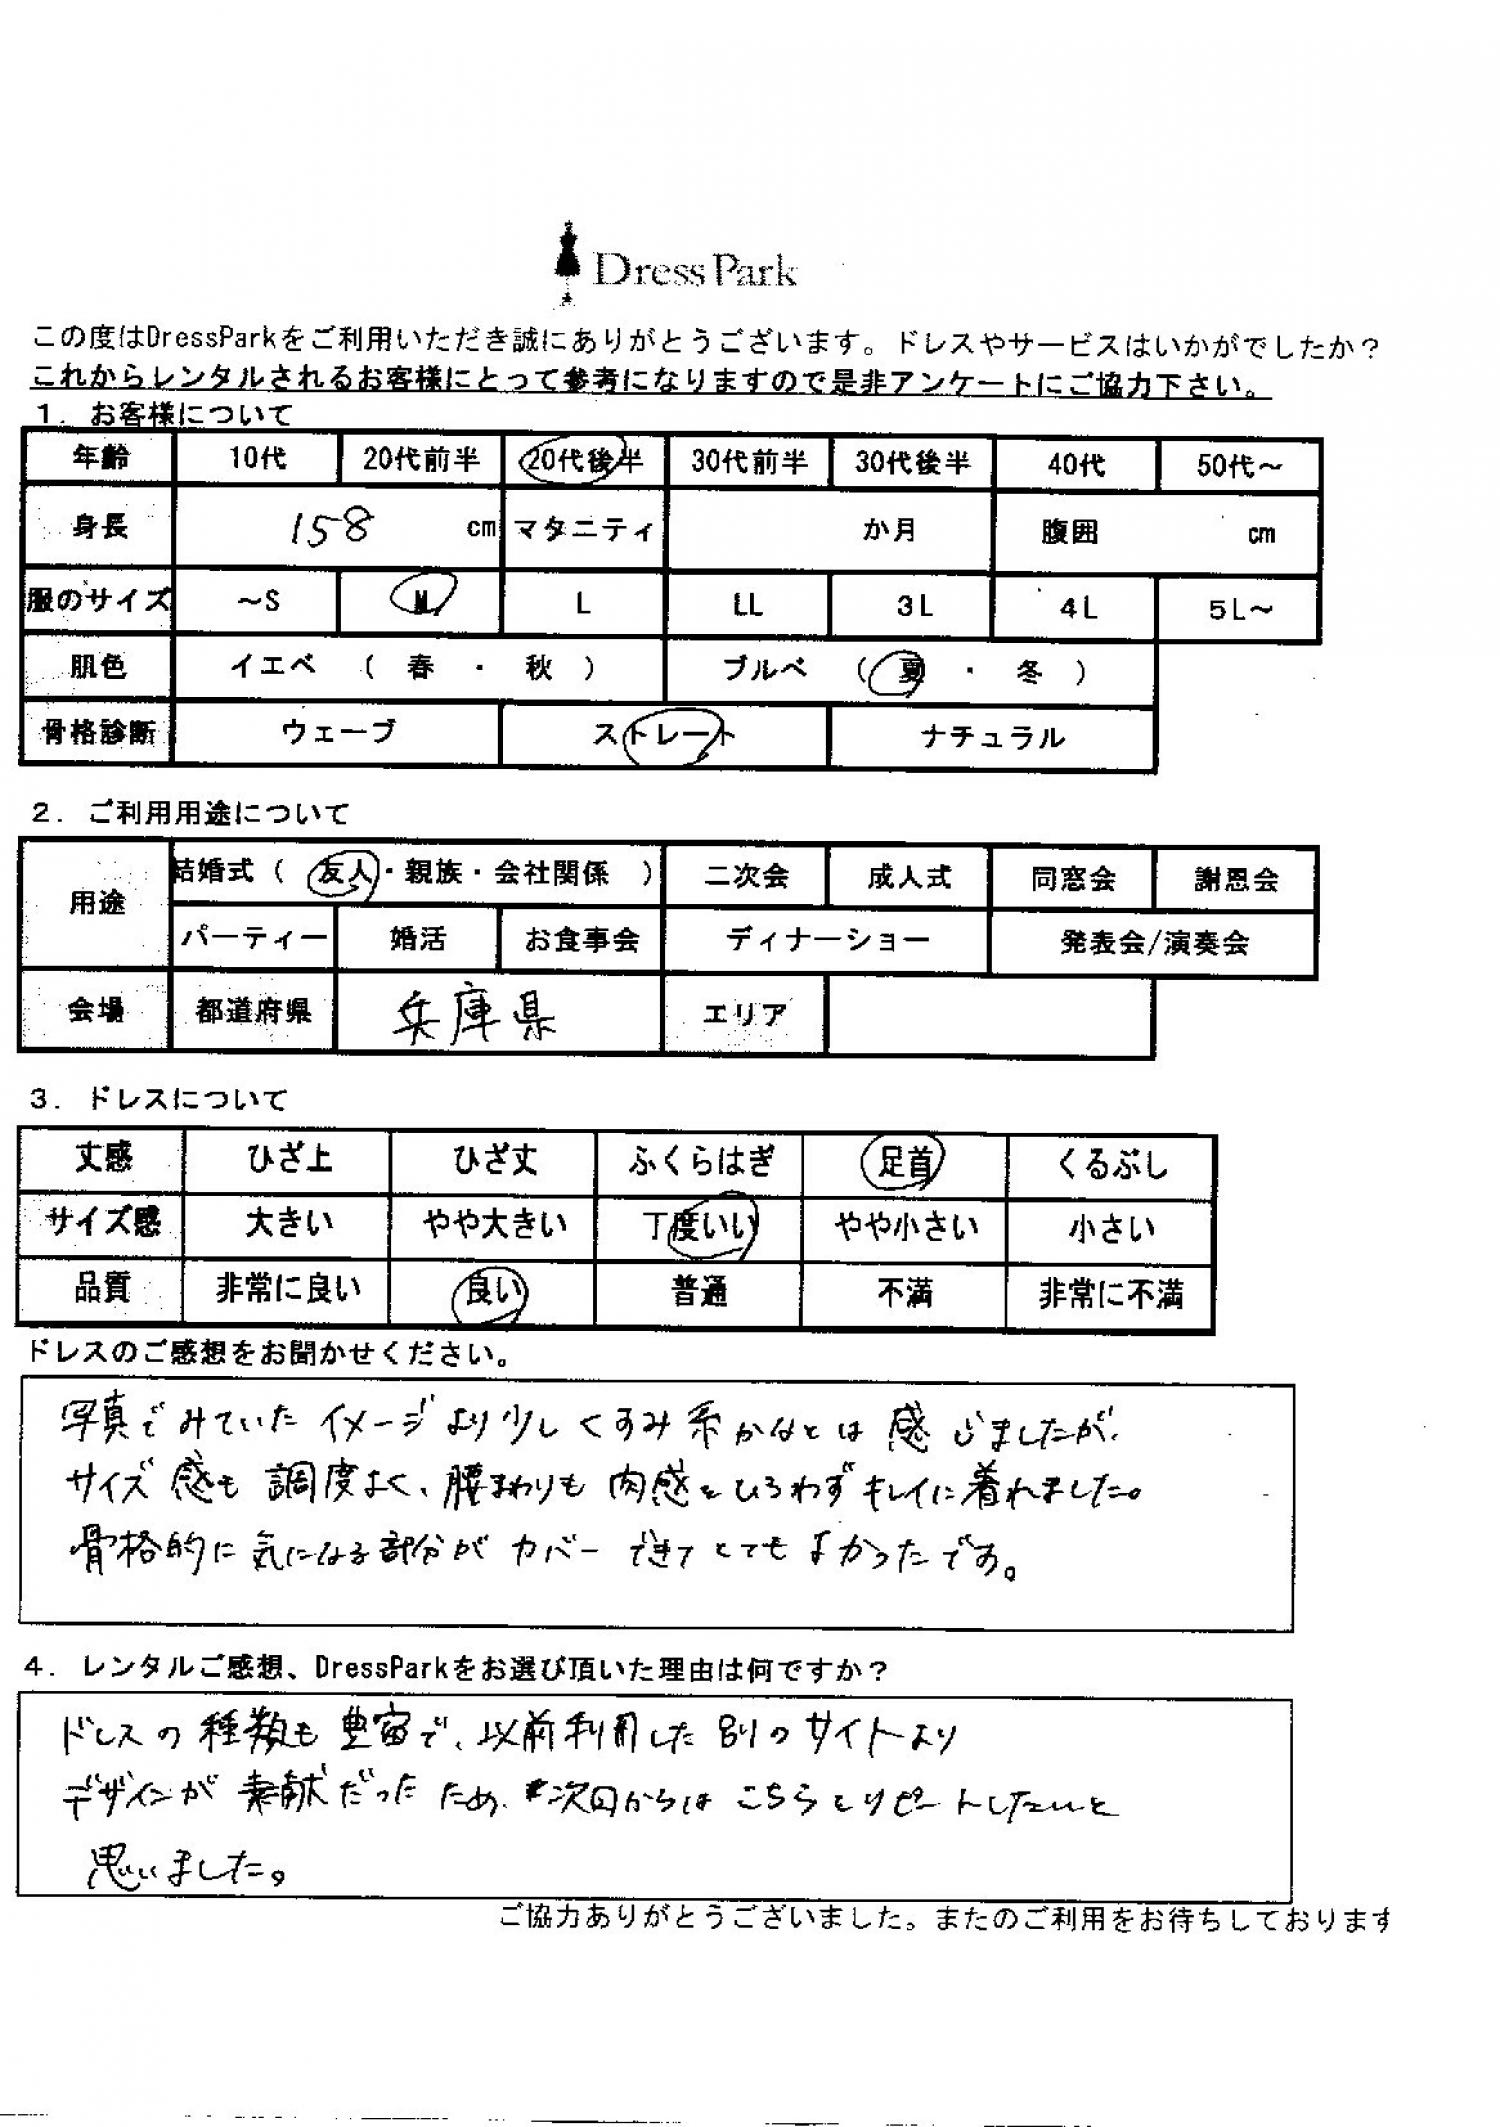 Dress Park
この度はDressParkをご利用いただき誠にありがとうございます。ドレスやサービスはいかがでしたか？
これからレンタルされるお客様にとって参考になりますので是非アンケートにご協力下さい。
１．お客様について
年齢 10代 20代前半 20代後半 30代前半 30代後半 40代 50代～
身長 158 cm マタニティ か月 腹囲 cm
服のサイズ ～S M L LL 3L 4L 5L～
肌色 イエベ （ 春 ・ 秋 ） ブルベ （ 夏 ・ 冬 ）
骨格診断 ウェーブ ストレート ナチュラル
２．ご利用用途について
用途 結婚式（ 友人・親族・会社関係 ） 二次会 成人式 同窓会 謝恩会
パーティー 婚活 お食事会 ディナーショー 発表会/演奏会
会場 都道府県 兵庫県 エリア
３．ドレスについて
丈感 ひざ上 ひざ丈 ふくらはぎ 足首 くるぶし
サイズ感 大きい やや大きい 丁度いい やや小さい 小さい
品質 非常に良い 良い 普通 不満 非常に不満
ドレスのご感想をお聞かせください。
写真でみていたイメージより少しくすみ系かなとは感じましたが、
サイズ感も調度よく、腰まわりも肉感をひろわずキレイに着れました。
骨格的に気になる部分がカバーできてとてもよかったです。
４．レンタルご感想、DressParkをお選び頂いた理由は何ですか？
ドレスの種類も豊富で、以前利用した別のサイトより
デザインが素献だったため、次回からはこちらをリピートしたいと
思いました。
ご協力ありがとうございました。またのご利用をお待ちしております